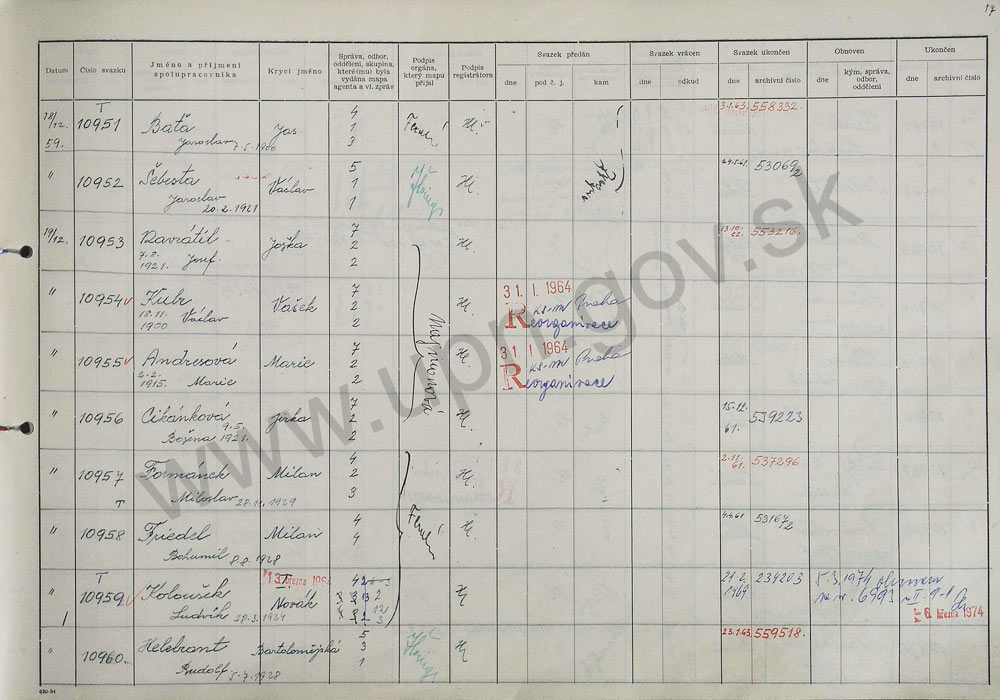 17
Datum
Číslo svazku
Jméno a příjmení spolupracovníka
Krycí jméno
Správa, odbor, oddělení, skupina, které(mu) byla vydána mapa agenta a vl. zpráv
Podpis orgána, který mapu přijal
Podpis registrátora
Svazek předán
dne
pod č. j.
kam
Svazek vrácen
dne
odkud
Svazek ukončen
dne
archivní číslo
Obnoven
dne
kým, správa, odbor, oddělení
Ukončen
dne
archivní číslo
18/12. 59. T 10951 Baťa Jas 4 1 3 3.1.63. 558332.
Jaroslav 7.5.1900
" 10952 Šebesta Václav 5 1 1 53069/2
Jaroslav 20.2.1921
19/12. 10953 Navrátil Joška 7 2 2 13.10. 62. 553216.
7.8. 1921. Josef.
" 10954 Kubr Vašek 7 2 2 31. I. 1964
18.11. 1900 Václav KS-MV Praha
Reorganisace
" 10955 Andresová Marie 7 2 2 31. I. 1964
2.2. 1915. Marie KS-MV Praha
Reorganisace
" 10956 Cikánková Jirka 7 2 2 15.12. 61. 539223
Božena 9.5. 1921.
" 10957 Formánek Milan 4 2 3 2.11. 61. 537296
T Miloslav 28.11.1929
" 10958 Friedel Milan 4 4 53167/2
Bohumil 8.8.1928
T 13. března 1964
" 10959 Koloušek Novák 21.2. 1969 234203 5.3.1974 obnoven
Ludvík 20.3.1924 6. března 1974
" 10960. Helebrant Bartolomějská 5 3 1 23.1.63 559518.
Rudolf 5.7.1928
630-54
www.upn.gov.sk